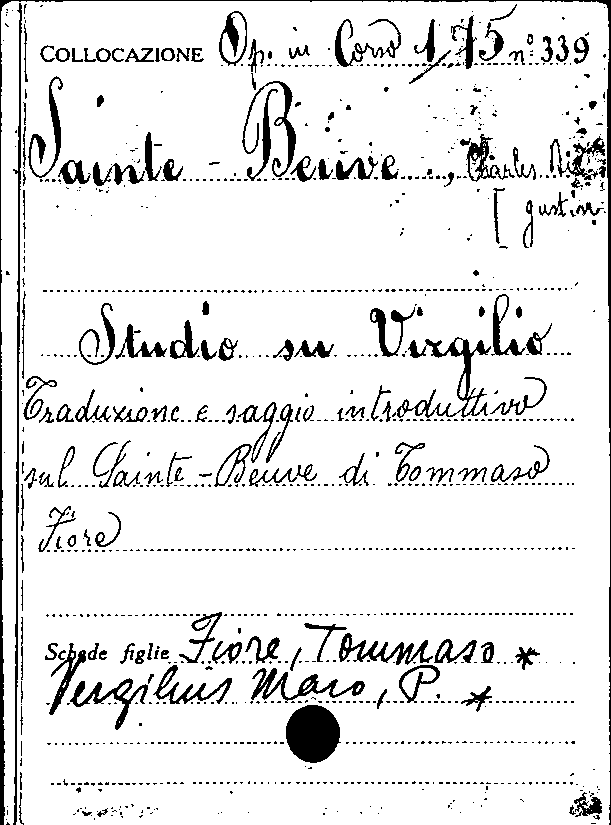 COLLOCAZIONE Op. in Corso 1/75 n° 339
Sainte - Beuve., Charles
[ gustin
Studio su Virgilio
Traduzione e saggio introduttivo
sul Sainte-Beuve di Tommaso
Fiore
Schede figlie Fiore, Tommaso *
Vergilius Maro, P. *